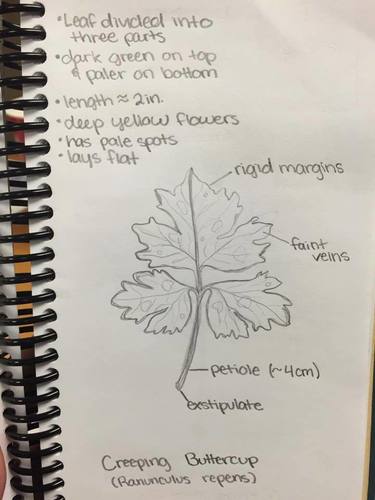 •Leaf divided into
three parts
•dark green on top
& paler on bottom
•length ≈ 2in.
•deep yellow flowers
•has pale spots
•lays flat
rigid margins
faint
veins
petiole (~4cm)
exstipulate
Creeping Buttercup
(Ranunculus repens)